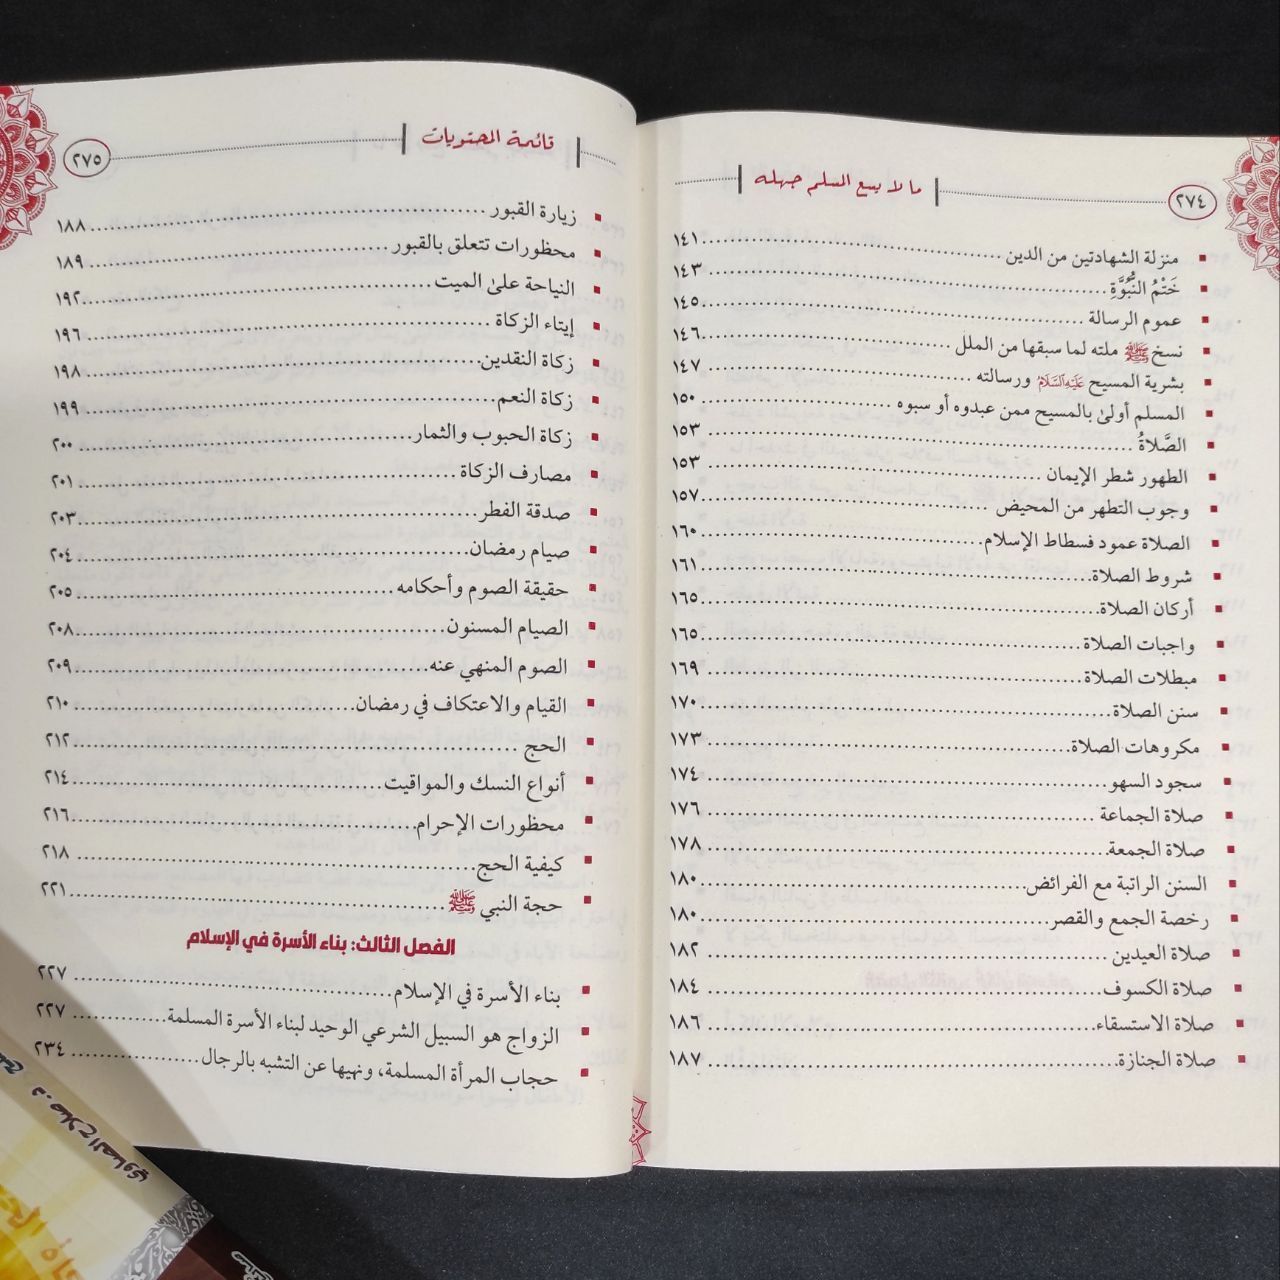 ٢٧٤
ما لا يسع المسلم جهله
منزلة الشهادتين من الدين ........ ١٤١
خَتْمُ النُّبُوَّةِ ........ ١٤٣
عموم الرسالة ........ ١٤٥
نسخ ﷺ ملته لما سبقها من الملل ........ ١٤٦
بشرية المسيح عَلَيْهِ السَّلَامُ ورسالته ........ ١٤٧
المسلم أولىٰ بالمسيح ممن عبدوه أو سبوه ........ ١٥٠
الصَّلاةُ ........ ١٥٣
الطهور شطر الإيمان ........ ١٥٣
وجوب التطهر من المحيض ........ ١٥٧
الصلاة عمود فسطاط الإسلام ........ ١٦٠
شروط الصلاة ........ ١٦١
أركان الصلاة ........ ١٦٥
واجبات الصلاة ........ ١٦٥
مبطلات الصلاة ........ ١٦٩
سنن الصلاة ........ ١٧٠
مكروهات الصلاة ........ ١٧٣
سجود السهو ........ ١٧٤
صلاة الجماعة ........ ١٧٦
صلاة الجمعة ........ ١٧٨
السنن الراتبة مع الفرائض ........ ١٨٠
رخصة الجمع والقصر ........ ١٨٠
صلاة العيدين ........ ١٨٢
صلاة الكسوف ........ ١٨٤
صلاة الاستسقاء ........ ١٨٦
صلاة الجنازة ........ ١٨٧
قائمة المحتويات
٢٧٥
زيارة القبور ........ ١٨٨
محظورات تتعلق بالقبور ........ ١٨٩
النياحة علىٰ الميت ........ ١٩٢
إيتاء الزكاة ........ ١٩٦
زكاة النقدين ........ ١٩٨
زكاة النعم ........ ١٩٩
زكاة الحبوب والثمار ........ ٢٠٠
مصارف الزكاة ........ ٢٠١
صدقة الفطر ........ ٢٠٣
صيام رمضان ........ ٢٠٤
حقيقة الصوم وأحكامه ........ ٢٠٥
الصيام المسنون ........ ٢٠٨
الصوم المنهي عنه ........ ٢٠٩
القيام والاعتكاف في رمضان ........ ٢١٠
الحج ........ ٢١٢
أنواع النسك والمواقيت ........ ٢١٤
محظورات الإحرام ........ ٢١٦
كيفية الحج ........ ٢١٨
حجة النبي ﷺ ........ ٢٢١
الفصل الثالث: بناء الأسرة في الإسلام
بناء الأسرة في الإسلام ........ ٢٢٧
الزواج هو السبيل الشرعي الوحيد لبناء الأسرة المسلمة ........ ٢٢٧
حجاب المرأة المسلمة، ونهيها عن التشبه بالرجال ........ ٢٣٤
د. صلاح الصاوي